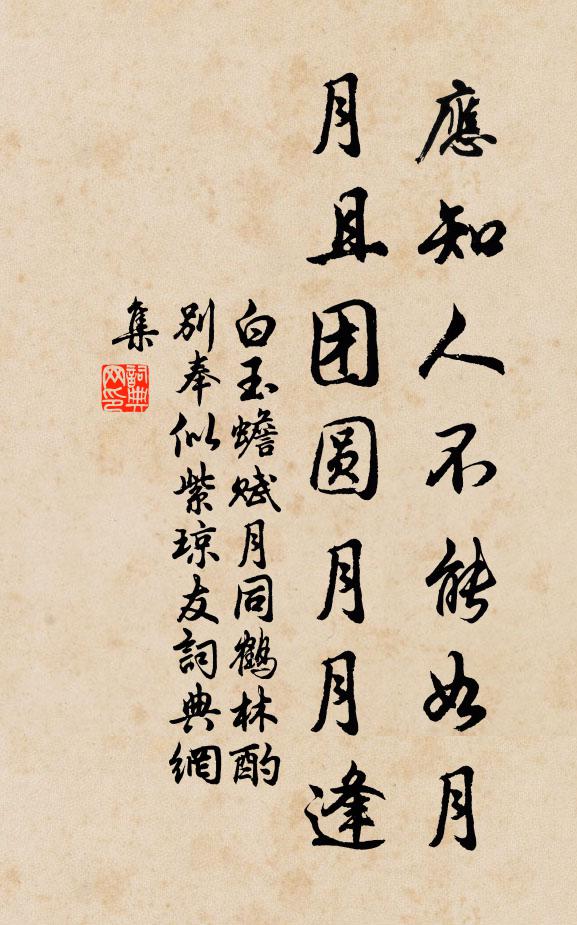 應知人不能如月
月且团圆月月逢
白玉蟾赋月同鶴林酌
別奉似紫琼友詞典網
集
詞典
网印